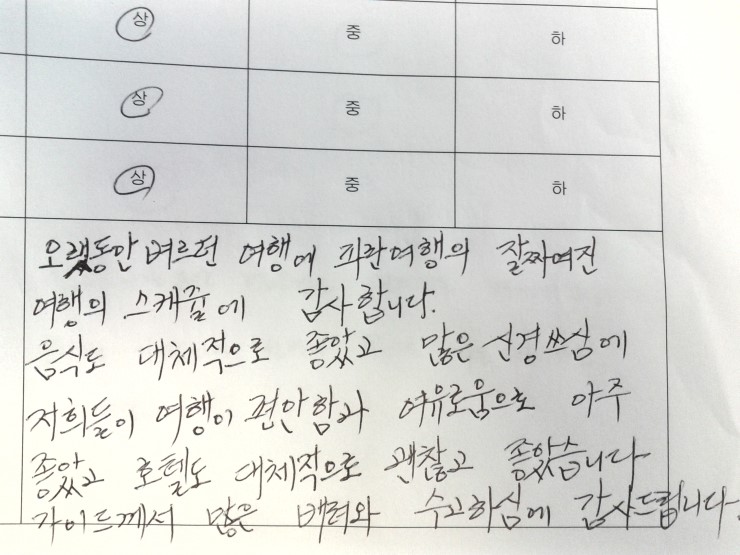 상 중 하
상 중 하
상 중 하
오랫동안 벼르던 여행에 파란여행의 잘짜여진
여행의 스케쥴에 감사합니다.
음식도 대체적으로 좋았고 많은 신경쓰심에
저희들이 여행이 편안함과 여유로움으로 아주
좋았고 호텔도 대체적으로 괜찮고 좋았습니다
가이드께서 많은 배려와 수고하심에 감사드립니다.